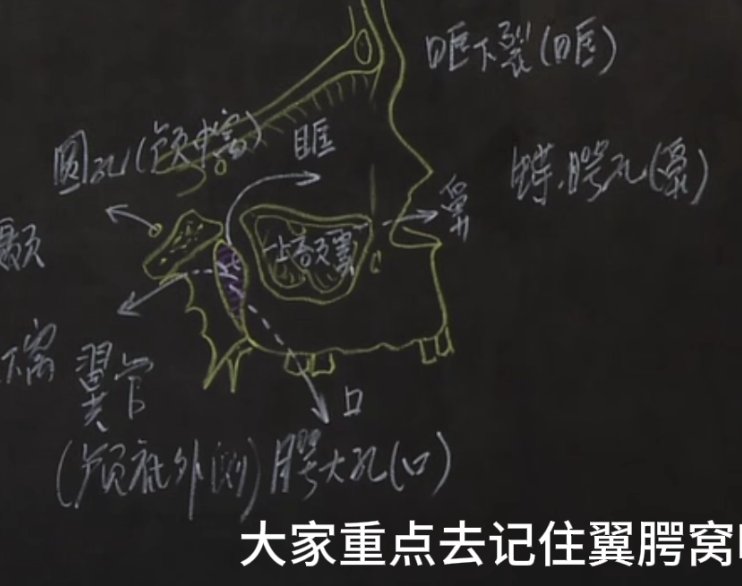 眶下裂(眶)
圆孔(颅中窝)
眶
蝶腭孔(鼻)
鼻
上颌窦
颞
下窝
翼管
口
(颅底外侧)
腭大孔(口)
大家重点去记住翼腭窝